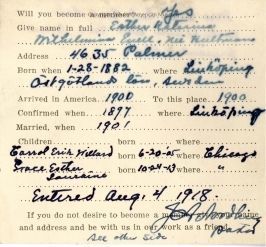 Will you become a member Yes
Give name in full Esther Katerina
Wilhelmina Snell, née Hultman
Address 4635 Palmer
Born when 1-28-1882 where Linköping
Östgötland län, Sweden
Arrived in America 1900 To this place 1900
Confirmed when 1897 where Linköping
Married, when 1901
Children
Carrol Erik Willard born 6-20-05 where Chicago
Grace Esther born 10-24-13 where "
Lorraine
Entered Aug. 4 1918.
If you do not desire to become a member
address and be with us in our work as a
See other side